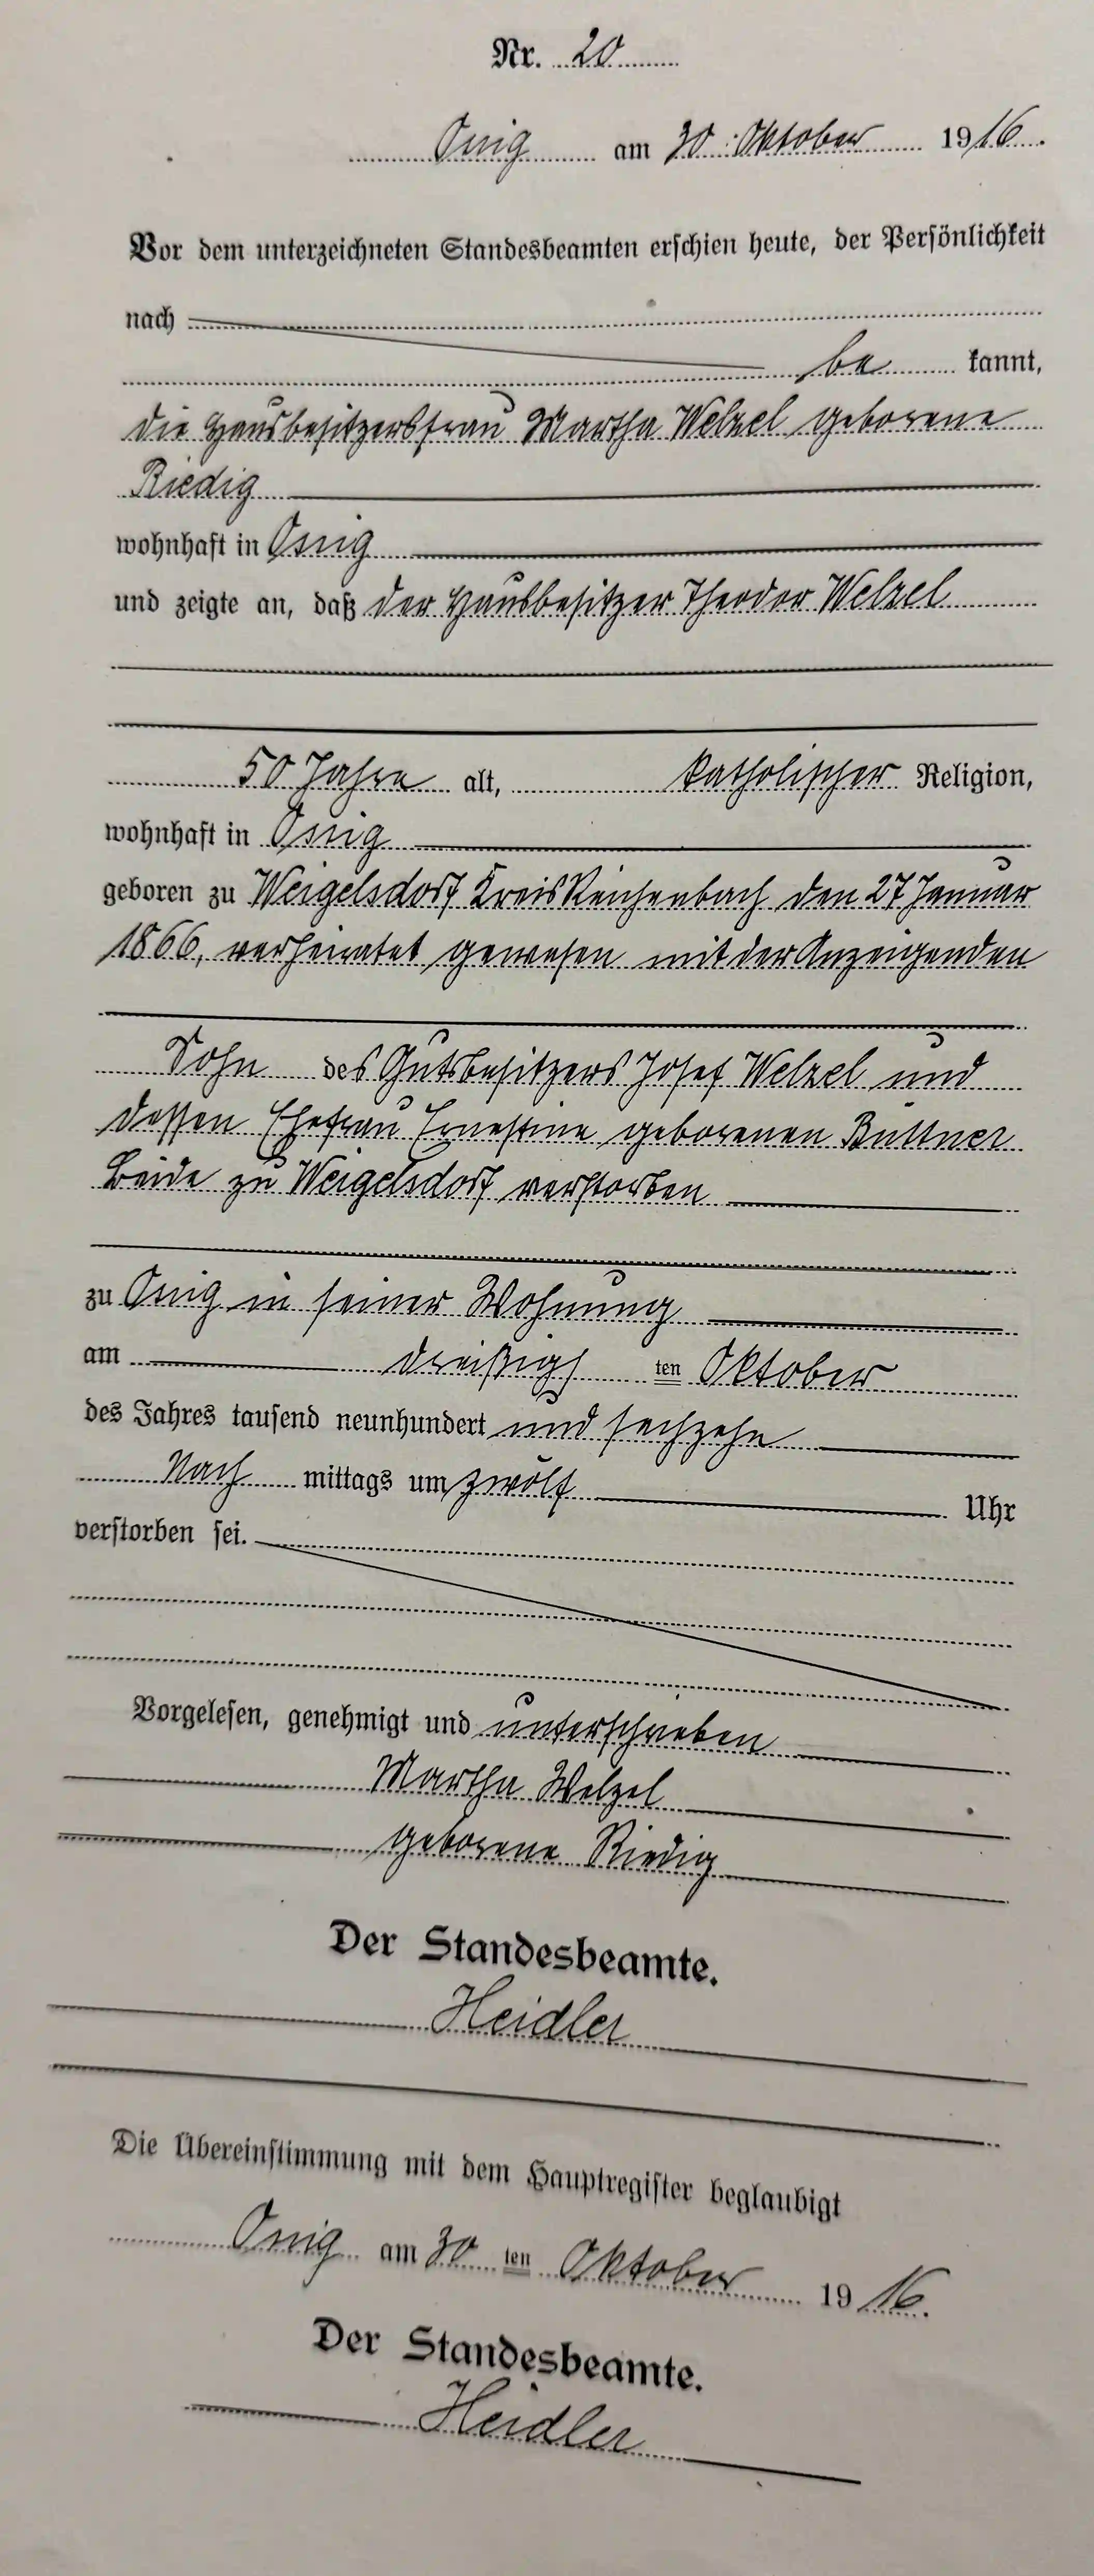 Nr. 20
Ossig am 30. Oktober 1916.
Vor dem unterzeichneten Standesbeamten erschien heute, der Persönlichkeit
nach
be kannt,
die Hausbesitzersfrau Martha Welzel geborene
Riedig
wohnhaft in Ossig
und zeigte an, daß der Hausbesitzer Theodor Welzel
50 Jahre alt, katholischer Religion,
wohnhaft in Ossig
geboren zu Weigelsdorf Kreis Reichenbach den 27 Januar
1866, verheiratet gewesen mit der Anzeigenden
Sohn des Gutsbesitzers Josef Welzel und
dessen Ehefrau Ernestine geborenen Büttner
Beide zu Weigelsdorf verstorben
zu Ossig in seiner Wohnung
am dreißigs ten Oktober
des Jahres tausend neunhundert und sechzehn
Nach mittags um zwölf Uhr
verstorben sei.
Vorgelesen, genehmigt und unterschrieben
Martha Welzel
geborene Riedig
Der Standesbeamte.
Heidler
Die Übereinstimmung mit dem Hauptregister beglaubigt
Ossig am 30 ten Oktober 1916.
Der Standesbeamte.
Heidler